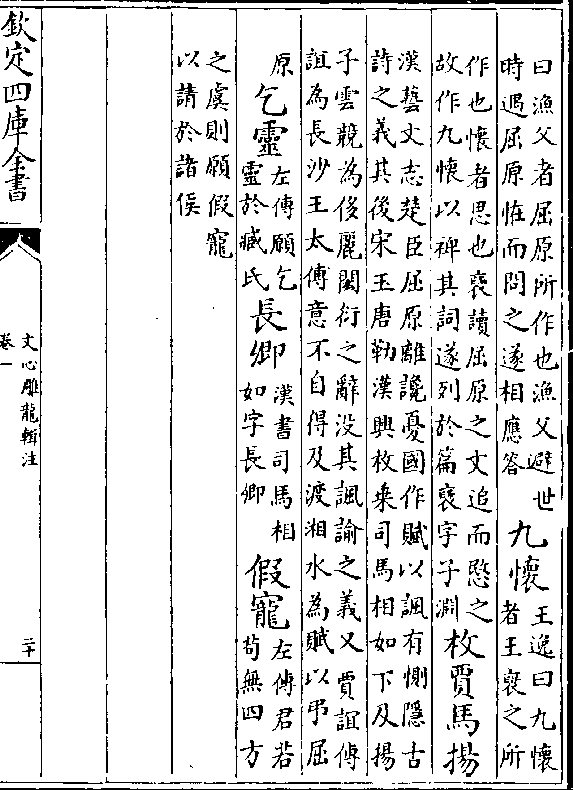 曰漁父者屈原所作也漁父避世
時遇屈原怪而問之遂相應答
九懷
王逸曰九懷
者王襃之所
作也懷者思也襃讀屈原之文追而愍之
故作九懷以裨其詞遂列於篇襃字子淵
枚賈馬揚
漢藝文志楚臣屈原離讒憂國作賦以諷有惻隱古
詩之義其後宋玉唐勒漢興枚乗司馬相如下及揚
子雲競為侈麗閎衍之辭没其諷諭之義又賈誼傳
誼為長沙王太傅意不自得及渡湘水為賦以弔屈
原
乞靈
左傳願乞
靈於臧氏
長卿
漢書司馬相
如字長卿
假寵
左傳君若
茍無四方
之虞則願假寵
以請於諸侯
欽定四庫全書
文心雕龍輯注
卷一
二十